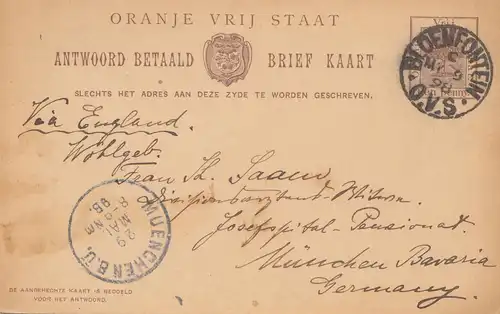 ORANJE VRIJ STAAT
ANTWOORD BETAALD BRIEF KAART
SLECHTS HET ADRES AAN DEZE ZYDE TE WORDEN GESCHREVEN.
BLOEMFONTEIN
O.V.S.
Via England.
Wohlgeb.
Frau Th. Saam
Divisionsarztens-Witwe
Josefspital-Pensionat
München Bavaria
Germany.
MUENCHEN B.Ü.
29
MAI
8-9 NM
95
DE AANGEHECHTE KAART IS BEDOELD
VOOR HET ANTWOORD.